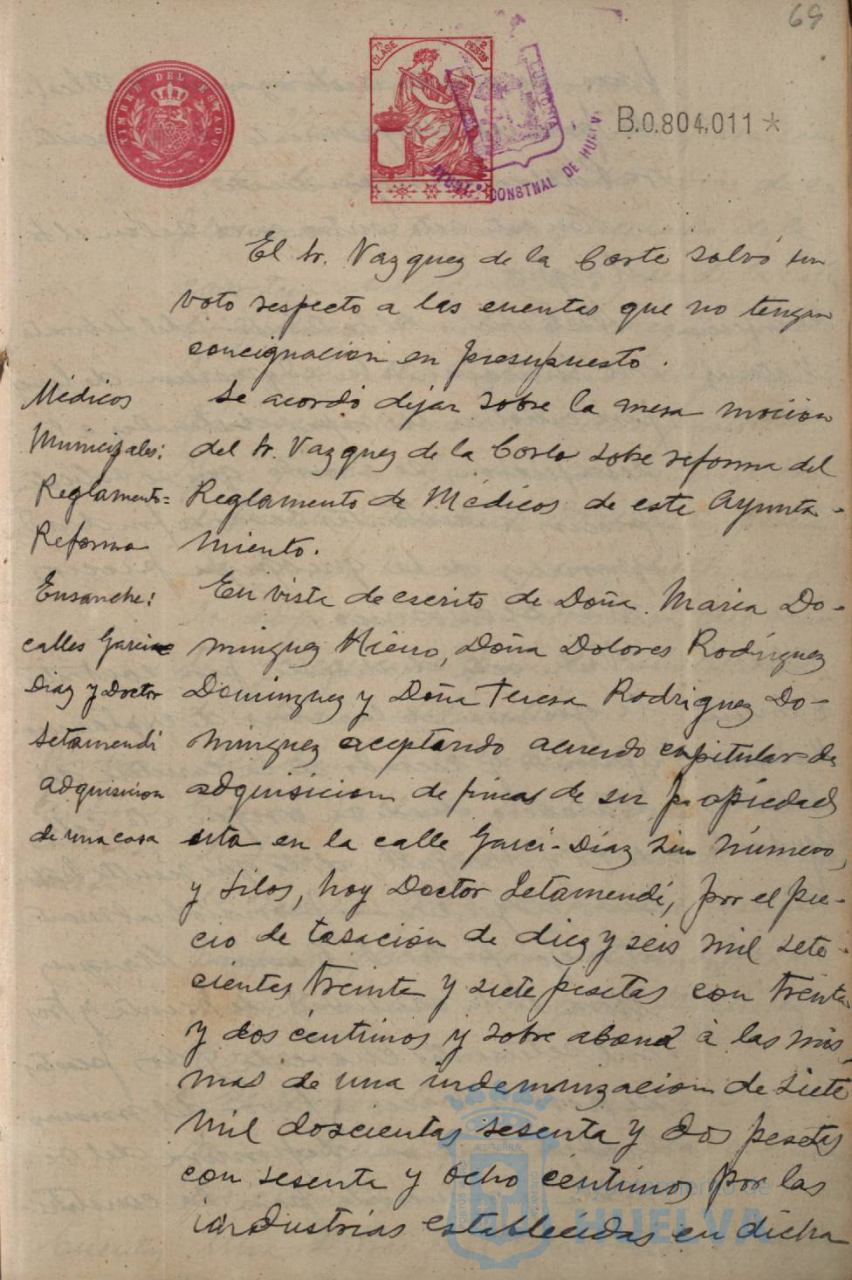 69
TIMBRE DEL ESTADO
7ª CLASE 2 PESETAS
CONSTNAL DE HUELVA
B.0.804,011 *
El Sr. Vazquez de la Corte salvó su
voto respecto a las cuentas que no tengan
concignacion en presupuesto.
Médicos
Municipales:
Reglamento=
Reforma
Se acordó dejar sobre la mesa mocion
del Sr. Vazquez de la Corte sobre reforma del
Reglamento de Médicos de este Ayunta-
miento.
Ensanche:
calles Garci
Diaz y Doctor
Letamendi
adquisicion
de una casa
En vista de escrito de Doña Maria Do-
minguez Hierro, Doña Dolores Rodríguez
Dominguez y Doña Teresa Rodriguez Do-
minguez aceptando acuerdo capitular de
adquisicion de finca de su propiedad
sita en la calle Garci-Díaz sin número,
y Silos, hoy Doctor Letamendi, por el pre-
cio de tasación de diez y seis mil sete-
cientas treinta y siete pesetas con treinta
y dos centimos y sobre abono á las mis-
mas de una indemnizacion de siete
mil doscientas sesenta y dos pesetas
con sesenta y ocho centimos por las
industrias establecidas en dicha
HUELVA